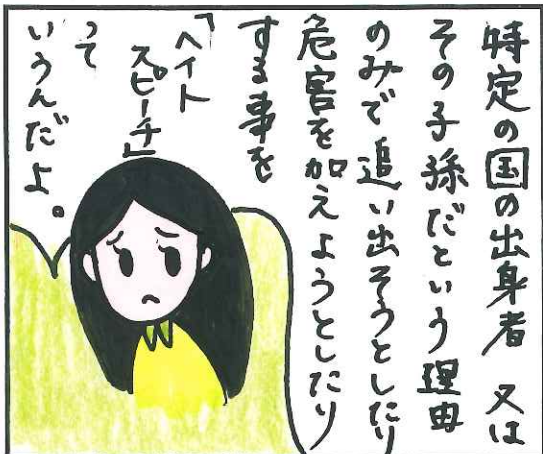 特定の国の出身者 又は
その子孫だという理由
のみで追い出そうとしたり
危害を加えようとしたり
する事を
「ヘイト
スピーチ」
って
いうんだよ。